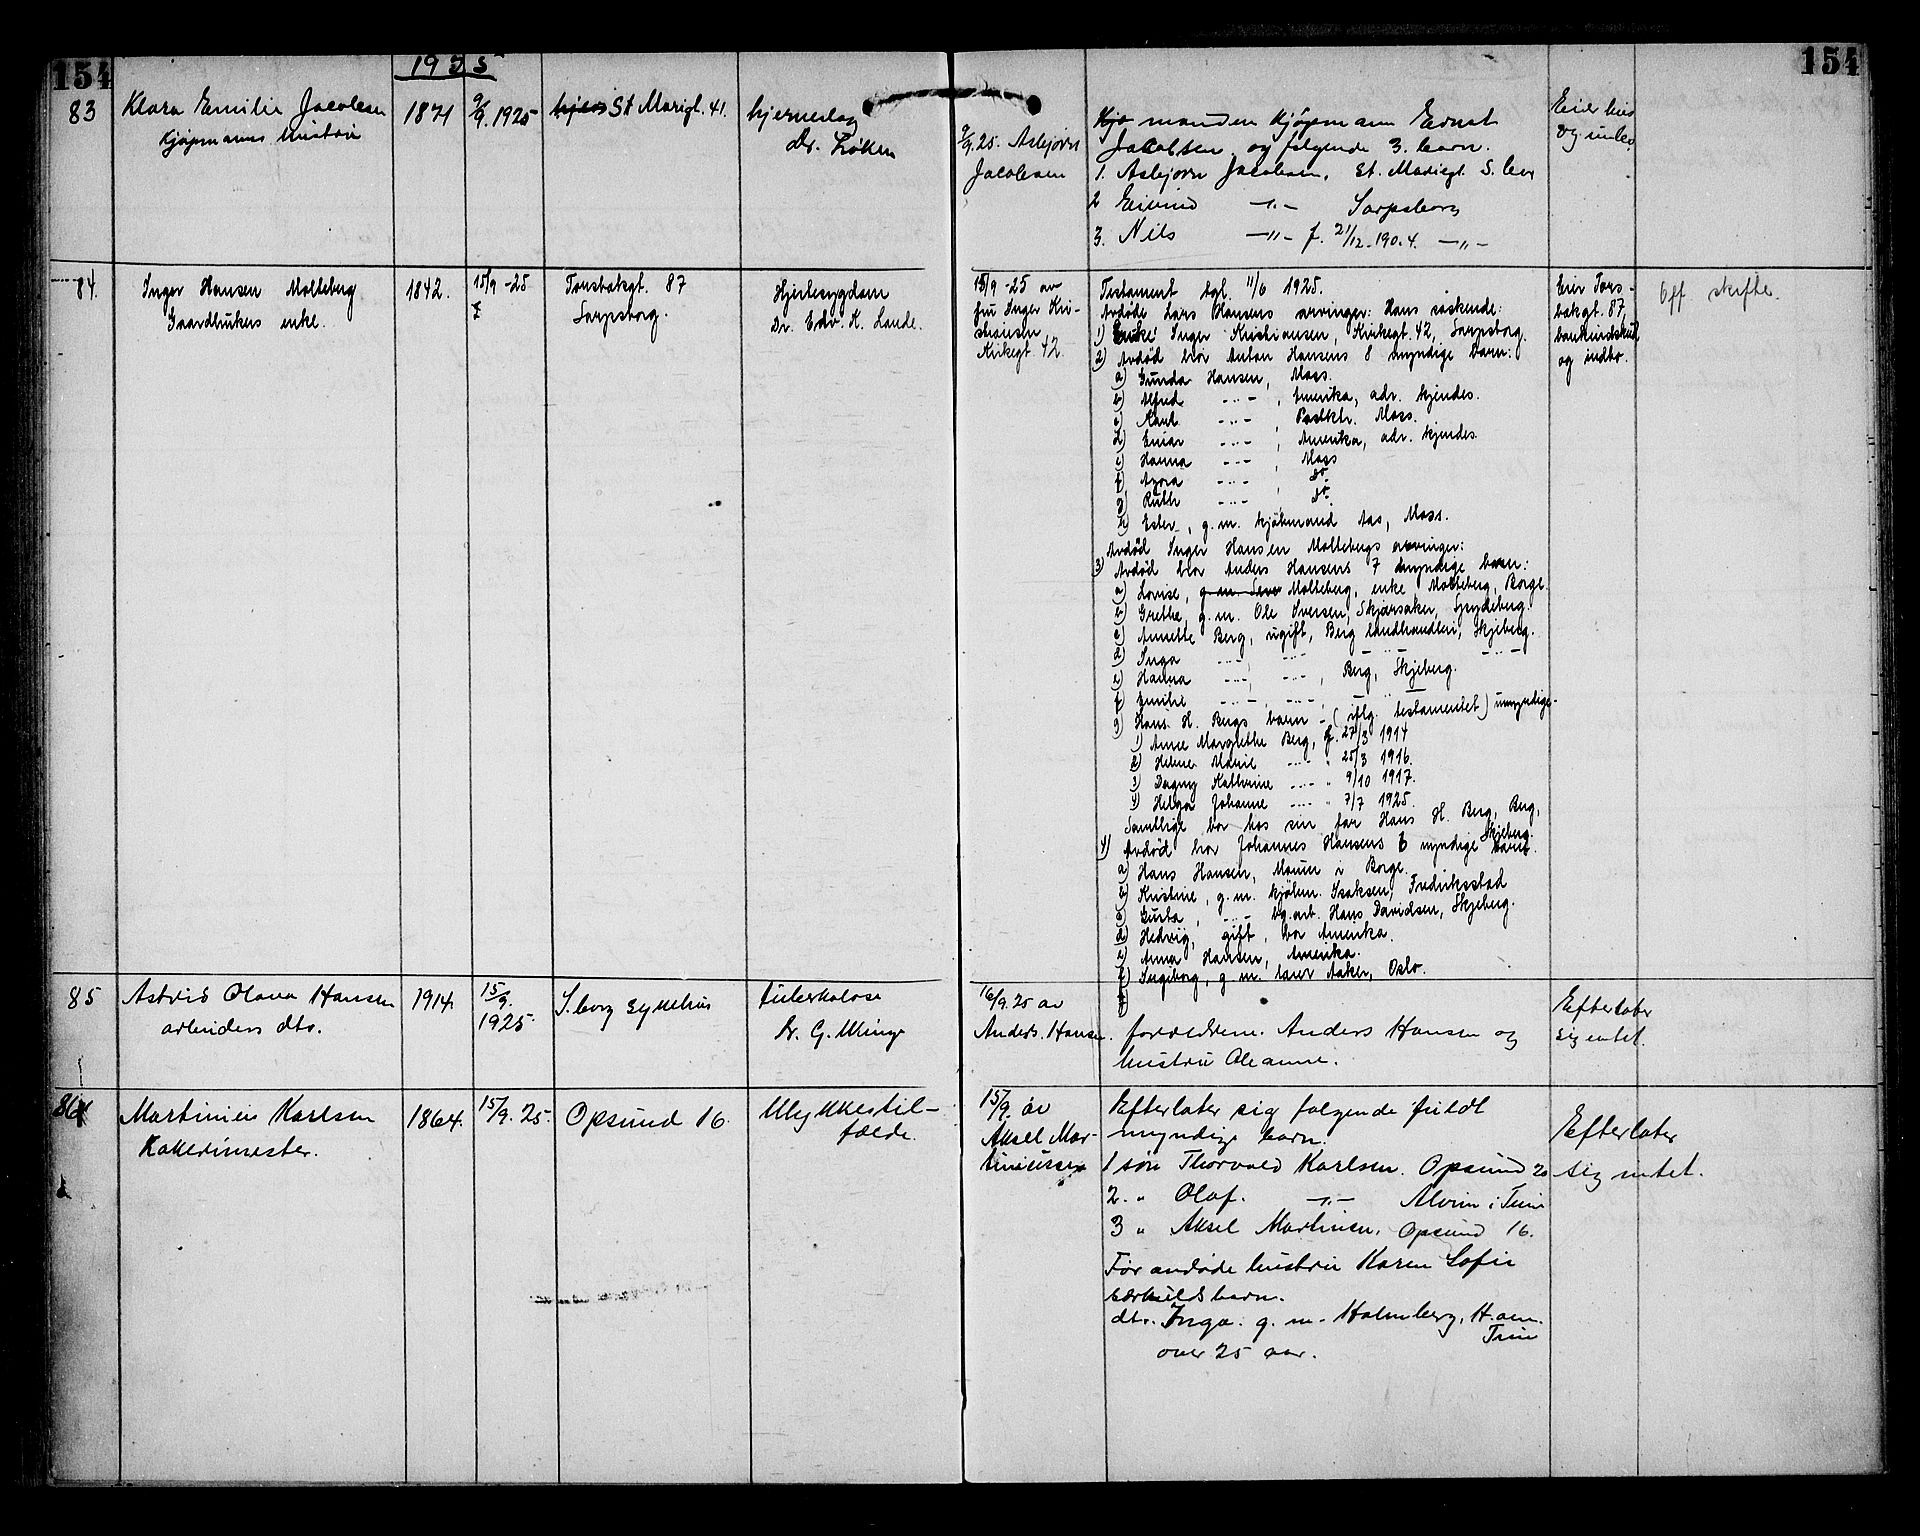 154
1925
154
83
Klara Emilie Jacobsen
Kjøpmanns hustru
1871
9/9. 1925
St Marigt. 41.
hjerneslag
Dr. Løken
9/9.25. Asbjørn
Jacobsen
manden kjøpmann Ernst
Jacobsen og følgende 3. barn.
1. Asbjørn Jacobsen, St. Mariegt. S.borg
2 Eivind —"— Sarpsborg
3. Nils —"— f. 21/12-1904. —"—
Eier hus
og innbo.
84.
Inger Hansen Molteberg
Gaardbrukers enke.
1842.
15/9 -25
Torsbakgt. 87
Sarpsborg.
Hjertesygdom
Dr. Edv. K. Lande.
15/9 -25 av
fru Inger Kri-
stiansen
Kirkegt. 42.
Testament tgl. 11/6 1925.
Avdøde Lars Hansens arvinger: Hans søskende:
1) Enke Inger Kristiansen, Kirkegt. 42, Sarpsborg.
2) Avdød bror Anton Hansens 8 myndige barn:
a) Gunda Hansen, Moss.
b) Alfred -"- , Amerika, adr. kjendes.
c) -"- , Moss.
d) Einar -"- , Amerika, adr. kjendes.
e) Hanna -"- , Moss
f) Agora -"- , do
g) Ruth -"- , do.
h) Ester, g.m. kjøbmand Aas, Moss.
Avdød Inger Hansen Moltebergs arvinger:
3) Avdød bror Anders Hansens 7 myndige barn:
a) Lovise, Molteberg, enke, Molteberg, Borge.
b) Grethe, g.m. Ole Iversen, Skjørsaker, Spydeberg.
c) Annette Berg, ugift, Berg landhandleri, Skjeberg.
d) Inga -"- , -"- -"- -"-
e) Hanna -"- , -"- , Berg, Skjeberg.
f) Emilie -"- , -"- , -"-
g) Hans H. Bergs barn - (iflg. testamentet) umyndige-
1) Anne Margrethe Berg, f. 27/3 1914
2) Helene Marie -"- " 25/3 1916.
3) Dagny Kathrine -"- " 9/10 1917.
4) Helga Johanne -"- " 7/7 1925.
Samtlige bor hos sin far Hans H. Berg, Berg,
Skjeberg.
4) Avdød bror Johannes Hansens 6 myndige barn.
a) Hans Hansen, Moum i Borge.
b) Kristine, g.m. kjøbm. Isaksen, Fredrikstad
c) Gusta, -"- bg.arb. Hans Davidsen, Skjeberg.
d) Hedvig, gift, bor Amerika.
e) Anna Hansen, Amerika.
f) Ingeborg, g.m. lærer Aaker, Oslo.
Eier Tors-
bakgt. 87,
bankindskud
og indbo.
Off skifte.
85
Astrid Olava Hansen
arbeiders dtr.
1914.
15/9.
1925.
S.borg sykehus
tuberkulose
Dr. G. Minge
16/9.25 av
Anders. Hansen.
forældrene. Anders Hansen og
hustru Oleanne.
Efterlater
sig intet.
86
Martinius Karlsen
1864.
15/9. 25.
Opsund 16.
Ulykkestil-
fælde.
15/9. av
Aksel Mar-
tiniussen
Efterlater sig følgende fuldt
myndige barn.
1 søn Thorvald Karlsen. Opsund 20
2. " Olaf. —"— Alvim i Tune
3 " Aksel Martinsen. Opsund 16.
Før avdøde hustru Karen Sofie
særkulds barn.
dtr. Inga. g. m. Holmberg,
Tune
over 25 aar.
Efterlater
sig intet.